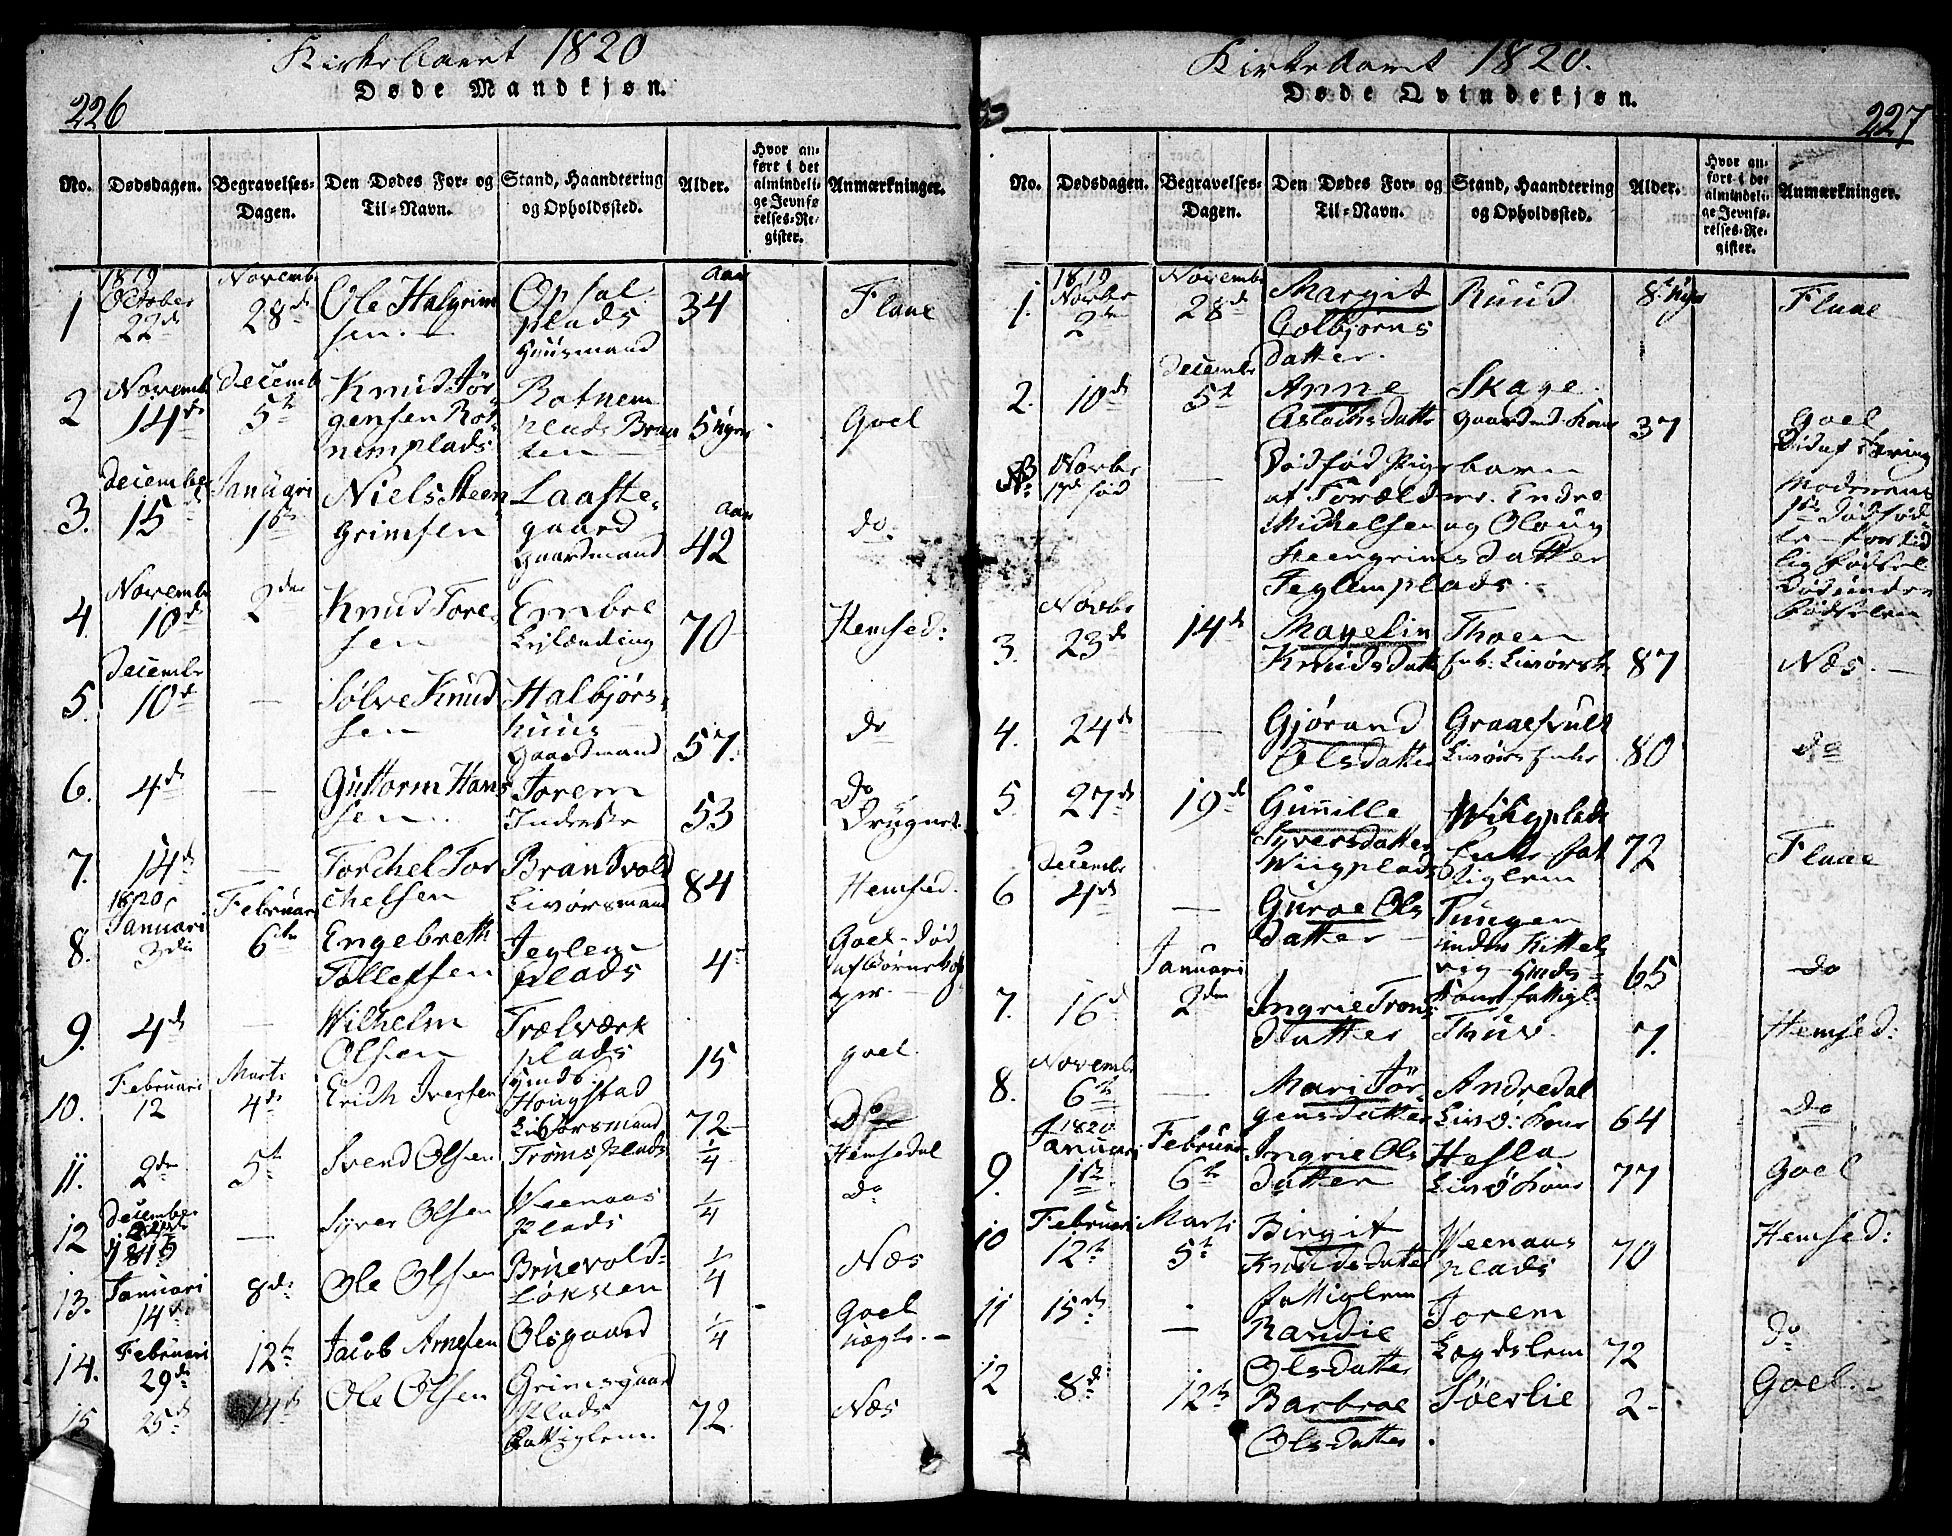 Kirke Aaret 1820
Døde Mandkjøn.
226
No. Dødsdagen. Begravelses-Dagen. Den Dødes For- og Til-Navn. Stand, Haandtering og Opholdssted. Alder. Hvor anført i det almindelige Jevnførelses-Register. Anmærkninger.
1 1819 October 22de Novembr 28de Ole Halgrimsen. Opsal plads Huusmand Aar 34 Flaae
2 Novemb 14de Decemb 5te Knud Jørgensen Rotnemplads Rotnem plads 5 Goel
3. December 15de Januari 1ste Niels Steengrimsen Laaftegaard Gaardmand Aar 42 do
4. Novembr 10de 2den Knud Toresen Embre 70 Hemsed:
5. Decembr 10de — Sølve Knudsen Halbjørshuus Gaardmand 57. do
6. 4de — Guttorm Hanssen Torem Inderste 53 Do
7. 14de — Torchel Torchelsen Brandvold Livørsmand 84 Hemsed.
8. 1820 Januari 3die Februari 6te Engebreth Tollefsen Teglem plads 4 Goel - Død af Børnekopper.
9. 4de — Wilhelm Olsen Trælværk plads 15 Goel
10. Februari 12 Marti 4de Erich Iversen Hougstad Livørsmand 72 Do
11. 2de 5te Svend Olsen Troms plads 1/4 Hemsedal
12 December 1819 — Syver Olsen Veenaas plads 1/4 do
13. Januari 14de 8de Ole Olsen Bruevold Løkken 1/4 Næs
14. Februari 29de 12te Jacob Arnesen Olsgaard 1/4 Goel
15 25de 14de Ole Olsen Grimsgaard Plads Fattiglem. 72 Næs
Kirke Aaret 1820.
Døde Qvindekjøn.
227
No. Dødsdagen. Begravelses-Dagen. Den Dødes For- og Til-Navn. Stand, Haandtering og Opholdssted. Alder. Hvor anført i det almindelige Jevnførelses-Register. Anmærkninger.
1. 1819 Novbr 2den Novembr 28de Margit Colbjørns datter. Ruud 8 Flaae
2. 10de Decembr 5te Anne Aslachsdatter Skage Gaardmd Kone 37 Goel
Novbr 17de fød — Dødfød Pigebarn af Forældre. Endre Michelsen og Oloug Steengrims datter Teglemplads. Død af Moderens Dødfødte - fortidlig fødsel Død under fødselen
3. Novbr 23de 14de Magelin Knudsdatter Thoen 87 Næs.
4. 24de — Gjørand Olsdatter 80 do
5. 27de 19de Gunille Syversdatter Wiigplads Wiigplads 72 Flaae
6 Decembr 4de — Guroe Olsdatter Tungen under 65 do
7. 16de Januari 2den Ingrie Trons datter Thuv. 7. Hemsed:
8. Novembr 6te — Mari Jørgensdatter Andredal Livø: Kone 64 do
9. 1820 Januari 1ste Februari 6te Ingrie Olsdatter Hesla Livø Kone 77 Goel
10 Februari 12te Marti 5te Birgit Knudsdatter Veenaas plads 70 Hemsed:
fattiglem
11 15de — Randie Olsdatter Torem Lægdslem 72 do
12 8de 12te Barbroe Olsdatter Søerlie 2 Goel.